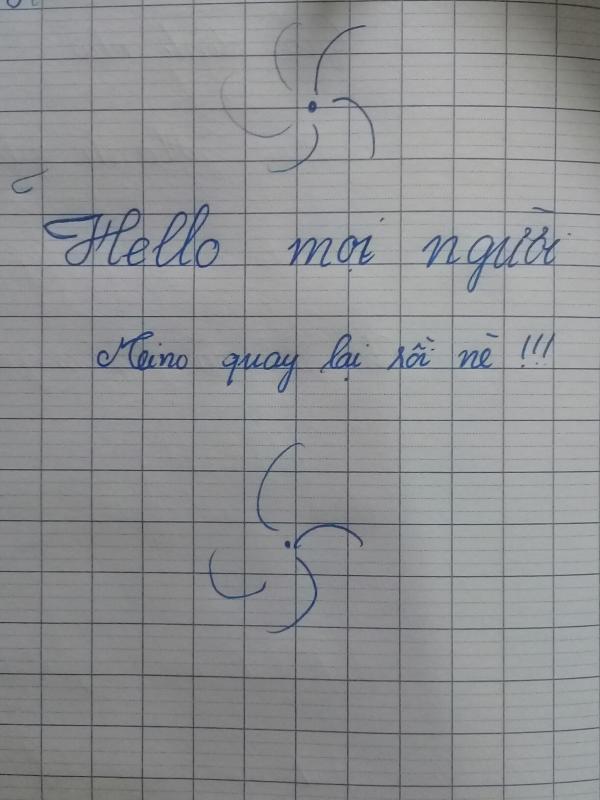 Hello mọi người
Meino quay lại rồi nè !!!